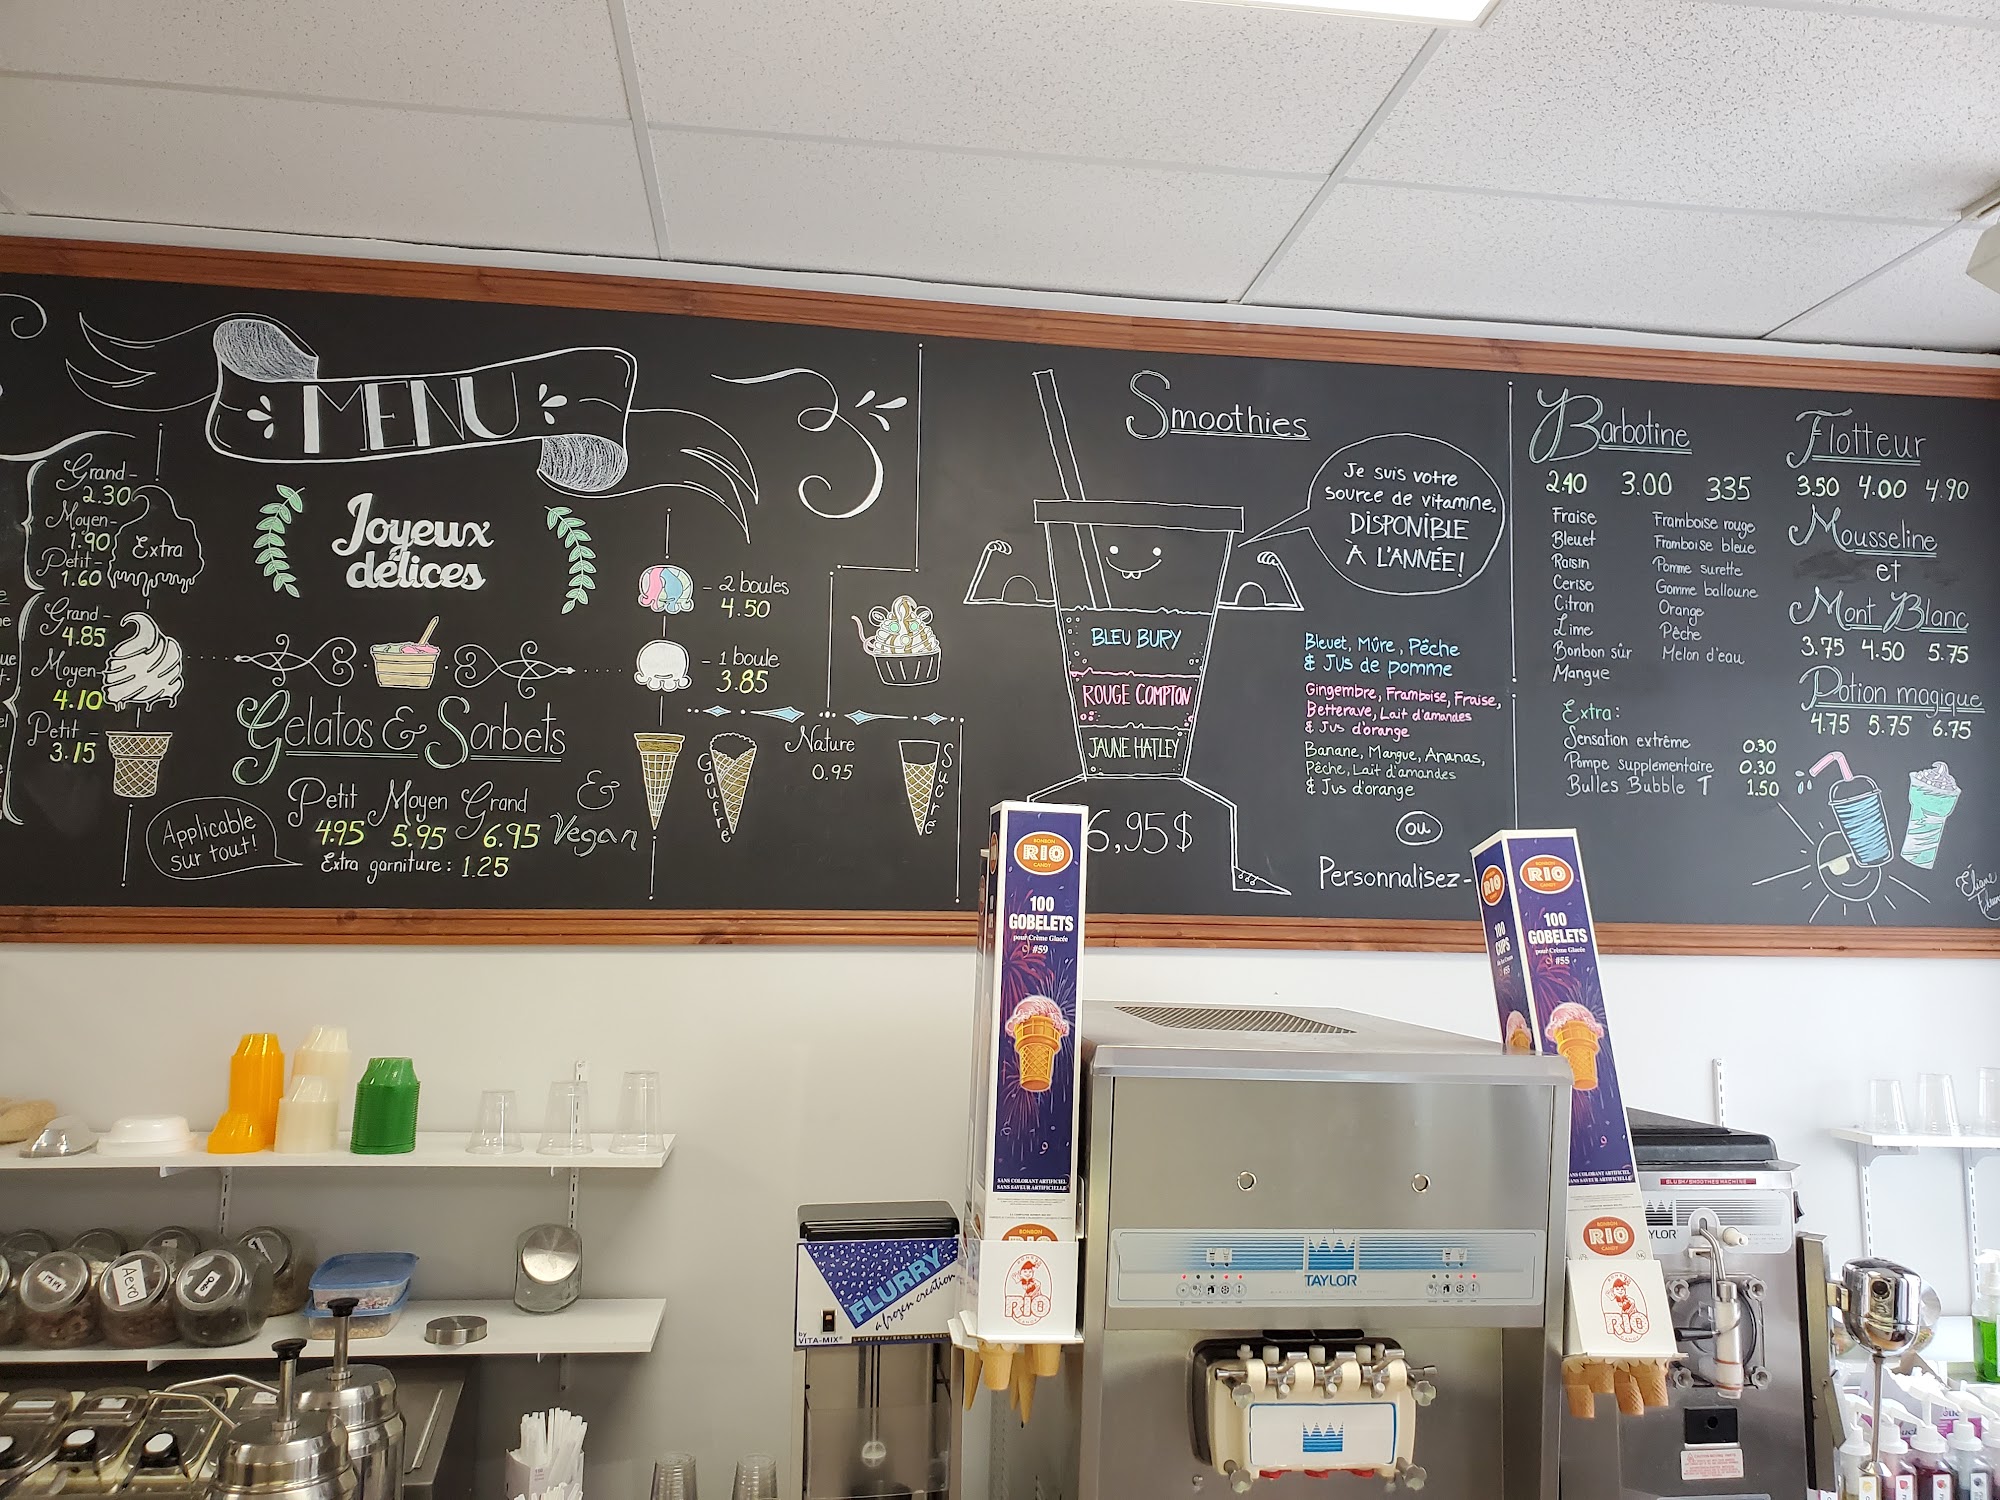 MENU
Joyeux
délices
Grand-
2.30
Moyen-
1.90
Petit-
1.60
Extra
Grand-
4.85
Moyen-
4.10
Petit-
3.15
Gelatos & Sorbets
Petit Moyen Grand
4.95 5.95 6.95
& Vegan
Extra garniture: 1.25
Applicable
sur tout!
- 2 boules
4.50
- 1 boule
3.85
Nature
0.95
Gaufre
Sucré
Smoothies
Je suis votre
source de vitamine,
DISPONIBLE
À L'ANNÉE!
BLEU BURY
ROUGE COMPTON
JAUNE HATLEY
6,95$
Bleuet, Mûre, Pêche
& Jus de pomme
Gingembre, Framboise, Fraise,
Betterave, Lait d'amandes
& Jus d'orange
Banane, Mangue, Ananas,
Pêche, Lait d'amandes
& Jus d'orange
ou
Personnalisez-
Barbotine
2.40 3.00 335
Fraise
Bleuet
Raisin
Cerise
Citron
Lime
Bonbon sûr
Mangue
Framboise rouge
Framboise bleue
Pomme surette
Gomme balloune
Orange
Pêche
Melon d'eau
Extra:
Sensation extrême 0.30
Pompe supplementaire 0.30
Bulles Bubble T 1.50
Flotteur
3.50 4.00 4.90
Mousseline
et
Mont Blanc
3.75 4.50 5.75
Potion magique
4.75 5.75 6.75
Éliane
BONBON
RIO
CANDY
100
GOBELETS
pour Crème Glacée
#59
SANS COLORANT ARTIFICIEL
SANS SAVEUR ARTIFICIELLE
BONBON
RIO
RIO
RIO
100
CUPS
#55
BONBON
RIO
CANDY
100
GOBELETS
pour Crème Glacée
#55
SANS COLORANT ARTIFICIEL
SANS SAVEUR ARTIFICIELLE
BONBON
RIO
CANDY
RIO
FLURRY
a frozen creation
by
VITA-MIX®
TAYLOR
SLUSH/SMOOTHEE MACHINE
YLOR
Aero